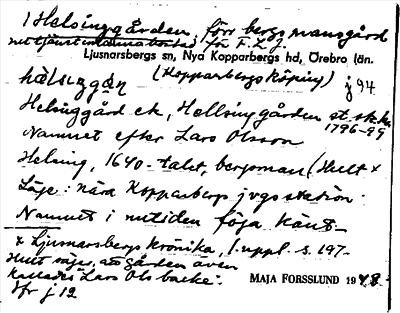 1 Helsinggården, förr bergsmansgård
nu tjänstemannabostad för F.L.J.
Ljusnarsbergs sn, Nya Kopparbergs hd, Örebro län.
(Kopparbergs köping) j 94
hälsiggán
Helsinggård ek, Hellsinggården st. sk.kr
1796-99
Namnet efter Lars Olsson
Helsing, 1640-talet, bergsman (Hult x
Läge: nära Kopparbergs jvgsstation.
Namnet i nutiden föga känt.
x Ljusnarsbergs krönika, 1. uppl. s. 197.
Hult säger, att gården även
kallades "Lars Ols backe".
Jfr j 12
MAJA FORSSLUND 1948